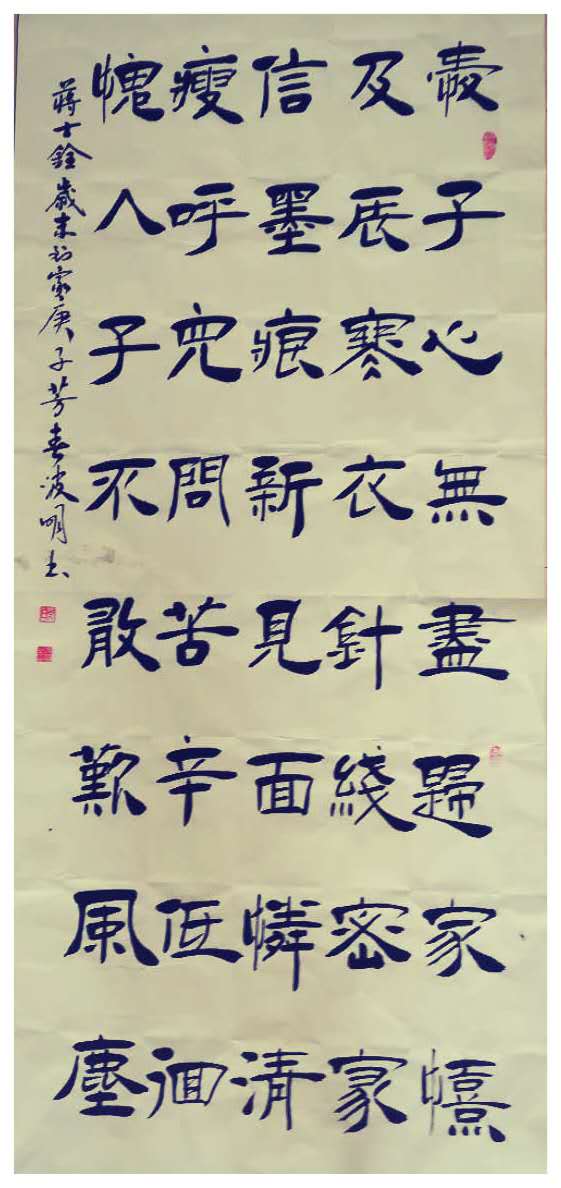 愛子心無盡歸家憘
及辰寒衣針綫密家
信墨痕新見面憐清
瘦呼兒問苦辛低徊
愧人子不敢歎風塵
蔣士銓歲末到家庚子芳春波明书